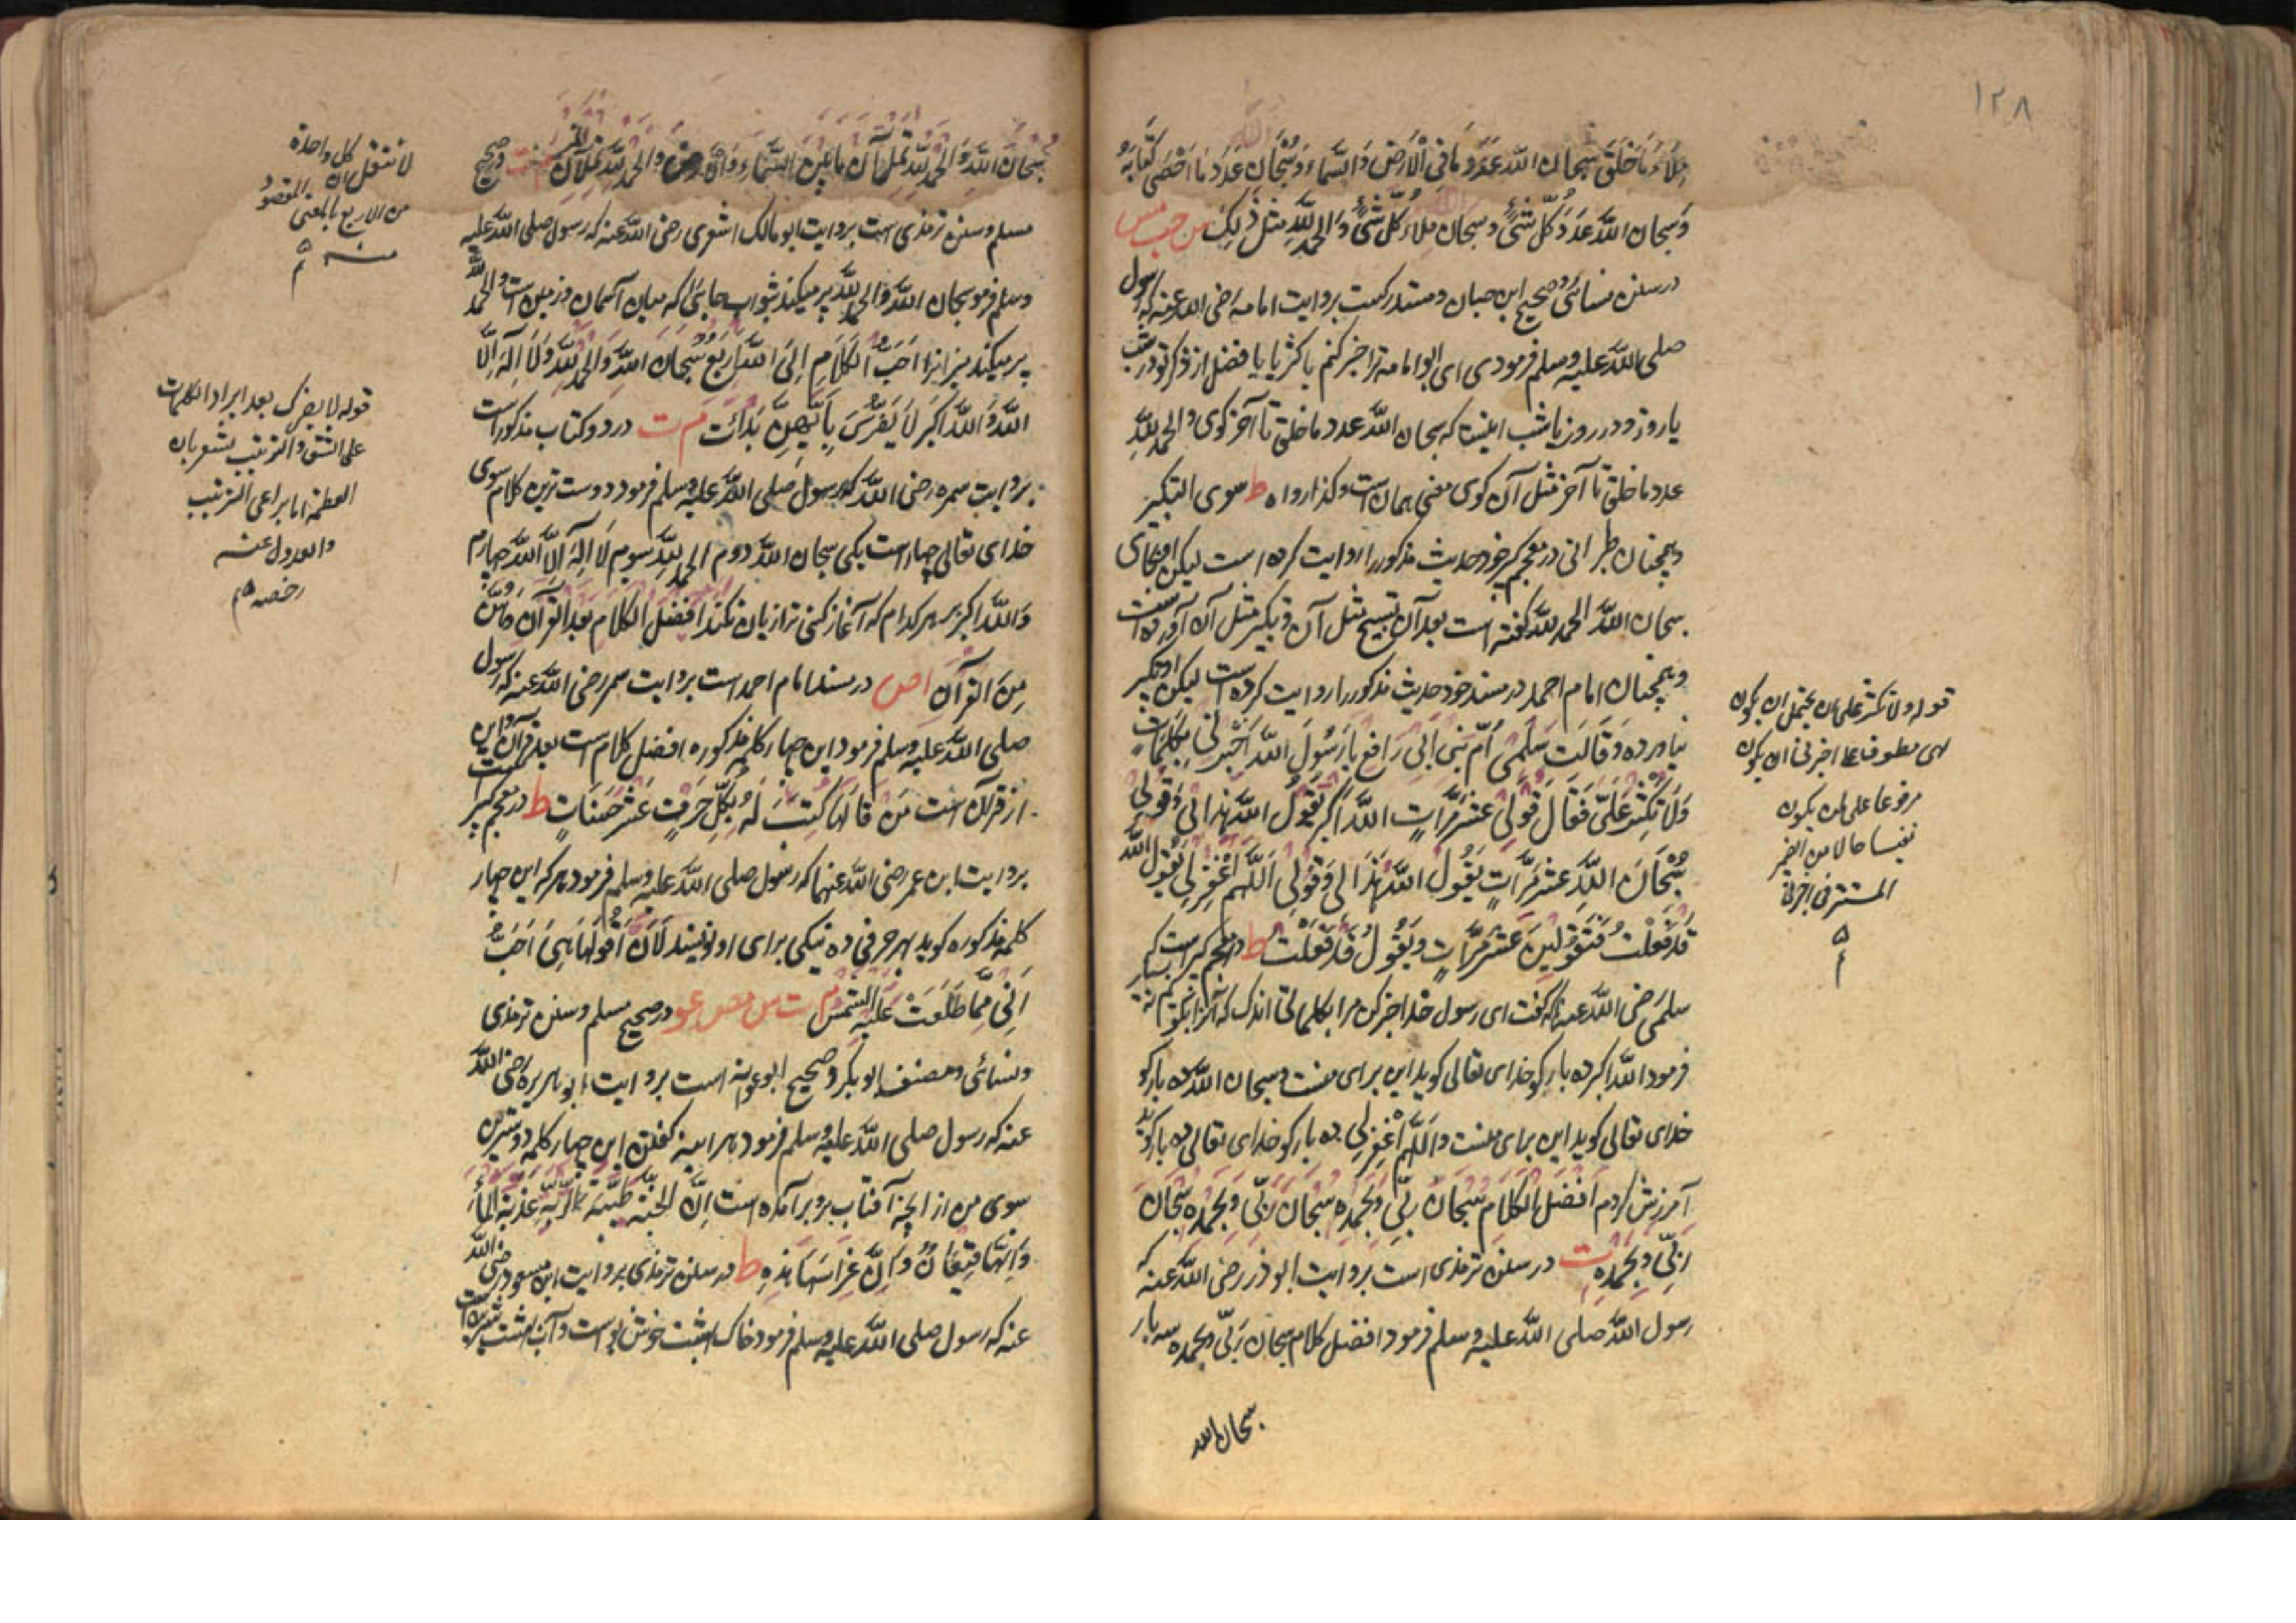 ١٢٨
مِلَاءَ مَا خَلَقَ سبحان الله عَدَدَ مَا فِی الْاَرْضِ وَالسَّمَاءِ وَسُبْحَانَ عَدَدَ مَا اَحْصٰی کِتَابُهُ
وَسبحان اللّٰه عَدَدَ کُلِّ شَیْءٍ وَسبحان مِلْاءَ کُلِّ شَیْءٍ وَالحمد لِلّٰهِ مثل ذٰلِکَ س حب مس
در سنن نسائی و صحیح ابن حبان و مستدرکست بروایت امامه رضی الله عنه که رسول
صلی اللّٰه علیه وسلم فرمودی ای ابوامامه ترا خبر کنم باکثر یا با فضل از ذکر تو در شب
یا روز و در روز با شب اینست که سبحان اللّٰه عدد ما خلق تا آخر گوی والحمد لِلّٰهِ
عدد ما خلق تا آخر مثل آن گوی معنی همان است وکذا رواه ط سوی التکبیر
وهمچنان طبرانی در معجم کبیر خود حدیث مذکور را روایت کرده است لیکن
سبحان اللّٰه الحمد للّٰه گفته است بعد آن تسبیح مثل آن و تکبیر مثل آن آورده است
وهمچنان امام احمد در مسند خود حدیث مذکور را روایت کرده است لیکن او تکبیر
نیاورده وَقَالَتْ سَلْمٰی اُمُّ بَنِی اَبِی رَافِعٍ یَا رَسُولَ اللّٰهِ اَخْبِرْنِی بِکَلِمَاتٍ
وَلَا تُکْثِرْ عَلَیَّ فَقَالَ قُولِی عَشْرَ مَرَّاتٍ اللّٰهُ اَکْبَرُ یَقُولُ اللّٰهُ هٰذَا لِی وَقُولِی
سُبْحَانَ اللّٰهِ عَشْرَ مَرَّاتٍ یَقُولُ اللّٰهُ هٰذَا لِی وَقُولِی اَللّٰهُمَّ اغْفِرْ لِی یَقُولُ اللّٰهُ
قَدْ فَعَلْتُ فَتَقُولِینَ عَشْرَ مَرَّاتٍ وَیَقُولُ قَدْ فَعَلْتُ ط در معجم کبیر است که
سلمی رضی اللّٰه عنها گفت ای رسول خدا خبر کن مرا بکلماتی اندک که آنرا بگویم نه بسیار
فرمود اللّٰه اکبر ده بار گو خدای تعالی گوید این برای منست و سبحان اللّٰه ده بار گو
خدای تعالی گوید این برای منست و اَللّٰهُمَّ اغْفِرْ لِی ده بار گو خدای تعالی ده بار گوید
آمرزش کردم اَفْضَلُ الْکَلَامِ سُبْحَانَ رَبِّی وَبِحَمْدِهِ سُبْحَانَ رَبِّی وَبِحَمْدِهِ سُبْحَانَ
رَبِّی وَبِحَمْدِهِ ت در سنن ترمذی است بروایت ابوذر رضی اللّٰه عنه که
رسول اللّٰه صلی اللّٰه علیه وسلم فرمود افضل کلام سبحان رَبِّی وبحمده سه بار
سبحان الله
قوله ولا تکثر علی ان یحتمل ان یکون
معطوف علی اخبرنی ان یکون
مرفوعا علی ان یکون
حالا من الضمیر
المستتر فی اخبرنی
سُبْحَانَ اللّٰهِ وَالْحَمْدُ لِلّٰهِ تَمْلَآنِ مَا بَیْنَ السَّمَاءِ وَالْاَرْضِ وَالْحَمْدُ لِلّٰهِ تَمْلَآنِ م ت در صحیح
مسلم وسنن ترمذی است بروایت ابومالک اشعری رضی اللّٰه عنه که رسول صلی اللّٰه علیه
وسلم فرمود سبحان اللّٰه وَالحمد لِلّٰه پر میکند بثواب جائی که میان آسمان و زمین است والحمد للّٰه
پر میکند میزانرا اَحَبُّ الْکَلَامِ اِلَی اللّٰهِ اَرْبَعٌ سُبْحَانَ اللّٰهِ وَالْحَمْدُ لِلّٰهِ وَلَا اِلٰهَ اِلَّا
اللّٰهُ وَاللّٰهُ اَکْبَرُ لَا یَضُرُّکَ بِاَیِّهِنَّ بَدَأْتَ م ت در دو کتاب مذکور است
بروایت سمره رضی اللّٰه که رسول صلی اللّٰه علیه وسلم فرمود دوست ترین کلام سوی
خدای تعالی چهار است یکی سبحان اللّٰه دوم الحمد لِلّٰهِ سیوم لَا اِلٰهَ اِلَّا اللّٰه چهارم
وَاللّٰه اکبر بهر کدام که آغاز کنی ترا زیان نکند اَفْضَلُ الْکَلَامِ بَعْدَ الْقُرْآنِ وَهُنَّ
مِنَ الْقُرْآنِ ا ص در مسند امام احمد است بروایت سمر رضی اللّٰه عنه که رسول
صلی اللّٰه علیه وسلم فرمود این چهار کلمه مذکوره افضل کلام است بعد قرآن و این
از قرآن است مَنْ قَالَهَا کُتِبَ لَهُ بِکُلِّ حَرْفٍ عَشْرُ حَسَنَاتٍ ط در معجم کبیر
بروایت ابن عمر رضی اللّٰه عنهما که رسول صلی اللّٰه علیه وسلم فرمود هر که این چهار
کلمه مذکوره گوید بهر حرفی ده نیکی برای او نویسند لَاَنْ اَقُولَهَا هِیَ اَحَبُّ
اِلَیَّ مِمَّا طَلَعَتْ عَلَیْهِ الشَّمْسُ م ت س مص عو در صحیح مسلم و سنن ترمذی
ونسائی ومصنف ابوبکر وصحیح ابوعوانه است بروایت ابوهریره رضی اللّٰه
عنه که رسول صلی اللّٰه علیه وسلم فرمود هرآینه گفتن این چهار کلمه دوسترین
سوی من از آنچه آفتاب برو برآمده است اِنَّ الْجَنَّةَ طَیِّبَةُ التُّرْبَةِ عَذْبَةُ الْمَاءِ
وَاِنَّهَا قِیعَانٌ وَاِنَّ غِرَاسَهَا هٰذِهِ ط در سنن ترمذی بروایت ابن مسعود رضی اللّٰه
عنه که رسول صلی اللّٰه علیه وسلم فرمود خاک بهشت خوش بواست و آب بهشت شیرین است
کل واحدة
من الاربع بالمعنی المقصود
منه
قوله لا یضرک بعد ایراد الکلمات
علی النسق والترتیب یشعر بان
یراعی الترتیب
والعدول عنه
رخصه